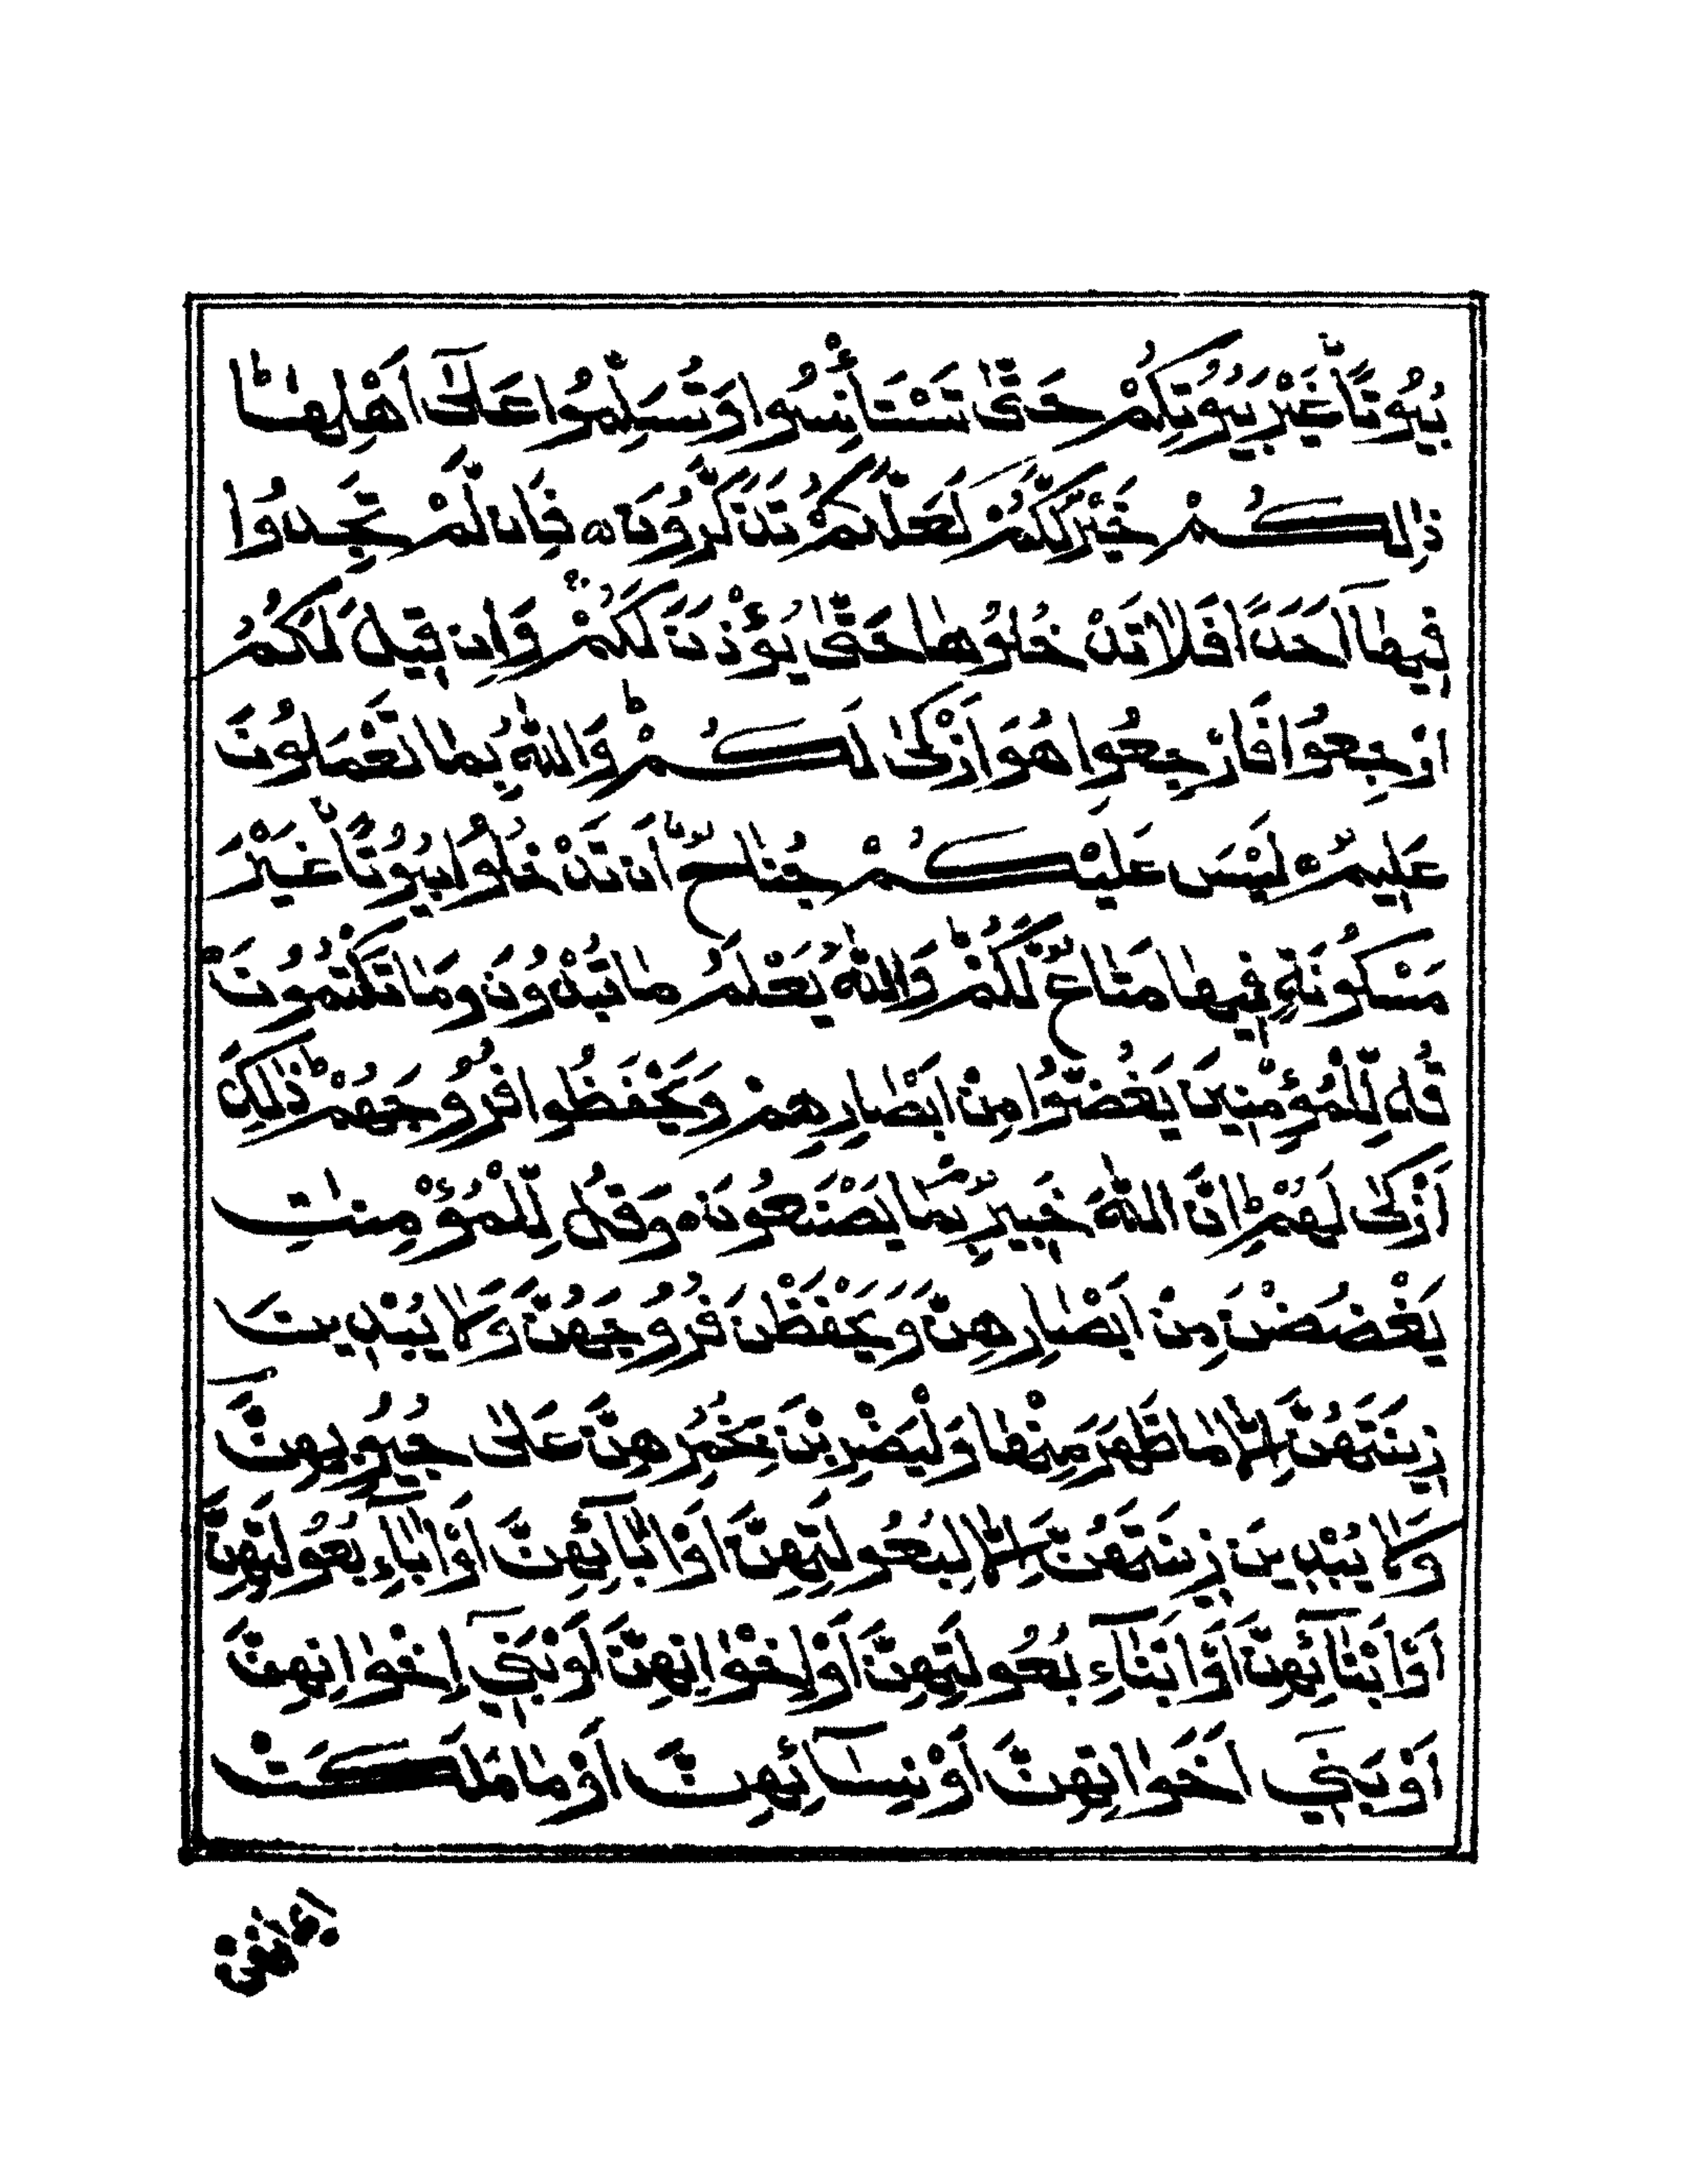 بُيُوتًا غَيْرَ بُيُوتِكُمْ حَتّٰى تَسْتَأْنِسُوا وَتُسَلِّمُوا عَلٰٓى اَهْلِهَاؕ
ذٰلِكُمْ خَيْرٌ لَّكُمْ لَعَلَّكُمْ تَذَكَّرُوْنَ ۝ فَاِنْ لَّمْ تَجِدُوْا
فِيْهَآ اَحَدًا فَلَا تَدْخُلُوْهَا حَتّٰى يُؤْذَنَ لَكُمْ وَاِنْ قِيْلَ لَكُمُ
ارْجِعُوْا فَارْجِعُوا هُوَ اَزْكٰى لَكُمْؕ وَاللّٰهُ بِمَا تَعْمَلُوْنَ
عَلِيْمٌ ۝ لَيْسَ عَلَيْكُمْ جُنَاحٌ اَنْ تَدْخُلُوْا بُيُوْتًا غَيْرَ
مَسْكُوْنَةٍ فِيْهَا مَتَاعٌ لَّكُمْؕ وَاللّٰهُ يَعْلَمُ مَا تُبْدُوْنَ وَمَا تَكْتُمُوْنَ ۝
قُلْ لِّلْمُؤْمِنِيْنَ يَغُضُّوْا مِنْ اَبْصَارِهِمْ وَيَحْفَظُوا فُرُوْجَهُمْؕ ذٰلِكَ
اَزْكٰى لَهُمْؕ اِنَّ اللّٰهَ خَبِيْرٌ بِمَا يَصْنَعُوْنَ ۝ وَقُلْ لِّلْمُؤْمِنٰتِ
يَغْضُضْنَ مِنْ اَبْصَارِهِنَّ وَيَحْفَظْنَ فُرُوْجَهُنَّ وَلَا يُبْدِيْنَ
زِيْنَتَهُنَّ اِلَّا مَا ظَهَرَ مِنْهَا وَلْيَضْرِبْنَ بِخُمُرِهِنَّ عَلٰى جُيُوْبِهِنَّ
وَلَا يُبْدِيْنَ زِيْنَتَهُنَّ اِلَّا لِبُعُوْلَتِهِنَّ اَوْ اٰبَآئِهِنَّ اَوْ اٰبَآءِ بُعُوْلَتِهِنَّ
اَوْ اَبْنَآئِهِنَّ اَوْ اَبْنَآءِ بُعُوْلَتِهِنَّ اَوْ اِخْوَانِهِنَّ اَوْ بَنِيْٓ اِخْوَانِهِنَّ
اَوْ بَنِيْ اَخَوٰاتِهِنَّ اَوْ نِسَآئِهِنَّ اَوْ مَا مَلَكَتْ